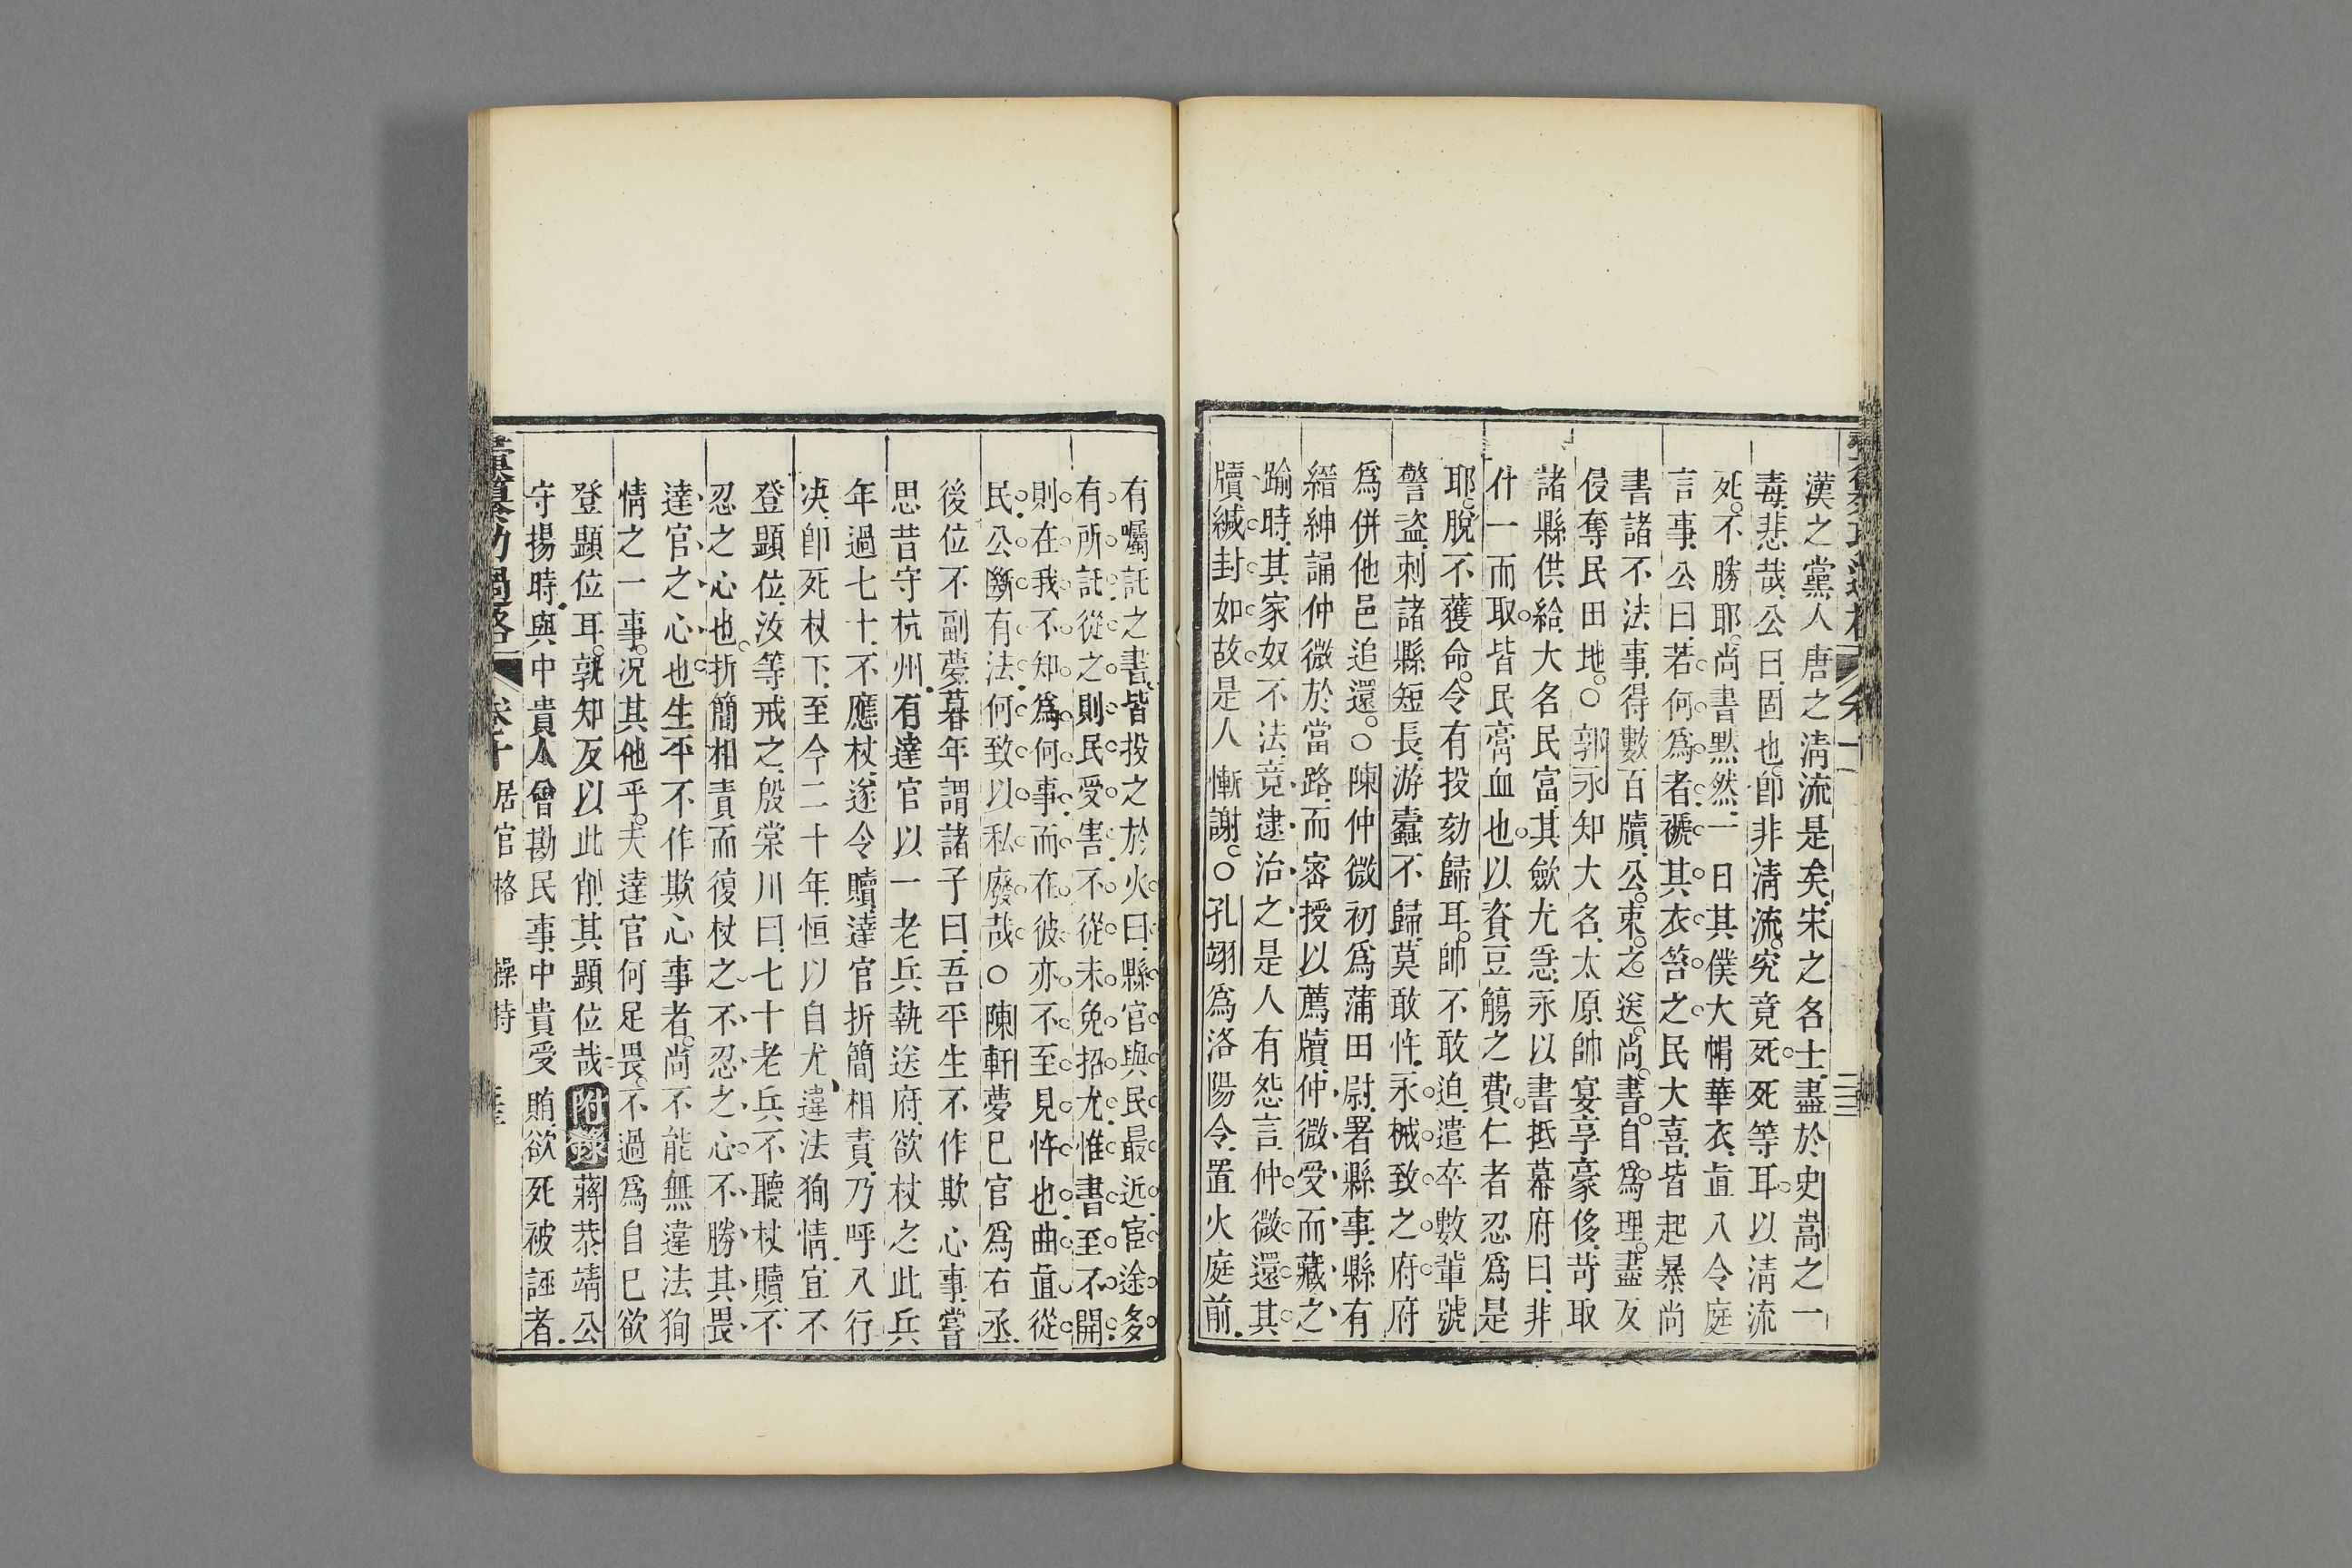 漢之黨人唐之淸流是矣宋之各士盡於史嵩之一
毒悲哉公曰固也卽非淸流究竟死死等耳以淸流
死不勝耶尚書黙然一日其僕大帽華衣直入令庭
言事公曰若何爲者褫其衣笞之民大喜皆起暴尚
書諸不法事得數百牘公束之送尚書自爲理盡反
侵奪民田地○郭永知大名太原帥宴享豪侈苛取
諸縣供給大名民富其歛尤亟永以書抵幕府曰非
什一而取皆民膏血也以資豆觴之費仁者忍爲是
耶脫不獲命令有投劾歸耳帥不敢迫遣卒數軰號
警盜刺諸縣短長游蠹不歸莫敢忤永械致之府府
爲併他邑追還○陳仲微初爲蒲田尉署縣事縣有
縉紳誦仲微於當路而密授以薦牘仲微受而藏之
踰時其家奴不法竟逮治之是人有怨言仲微還其
牘緘封如故是人慚謝○孔翊爲洛陽令置火庭前
有囑託之書皆投之於火曰縣官與民最近宦途多
有所託從之則民受害不從未免招尤惟書至不開
則在我不知爲何事而在彼亦不至見忤也曲直從
民公斷有法何致以私廢哉○陳軒夢已官爲右丞
後位不副夢暮年謂諸子曰吾平生不作欺心事嘗
思昔守杭州有達官以一老兵執送府欲杖之此兵
年過七十不應杖遂令贖達官折簡相責乃呼入行
决卽死杖下至今二十年恒以自尤違法狥情宜不
登顯位汝等戒之殷棠川曰七十老兵不聽杖贖不
忍之心也折簡相責而復杖之不忍之心不勝其畏
達官之心也生平不作欺心事者尚不能無違法狥
情之一事况其他乎夫達官何足畏不過爲自巳欲
登顯位耳孰知反以此削其顯位哉附錄蔣恭靖公
守揚時與中貴人曾勘民事中貴受賄欲死被誣者
卷十 居官格 操持